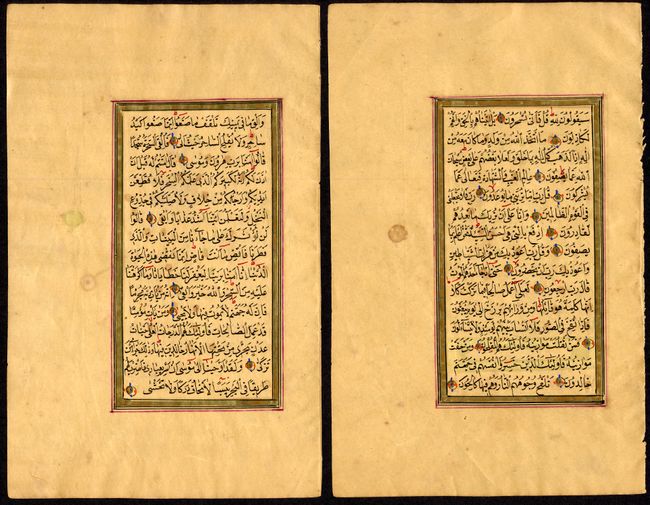 سيقولون لله قل فأنى تسحرون بل أتيناهم بالحق وإنهم
لكاذبون ما اتخذ الله من ولد وما كان معه من
إله إذا لذهب كل إله بما خلق ولعلا بعضهم على بعض سبحان
الله عما يصفون عالم الغيب والشهادة فتعالى عما
يشركون قل رب إما تريني ما يوعدون رب فلا تجعلني
في القوم الظالمين وإنا على أن نريك ما نعدهم
لقادرون ادفع بالتي هي أحسن السيئة نحن أعلم بما
يصفون وقل رب أعوذ بك من همزات الشياطين
وأعوذ بك رب أن يحضرون حتى إذا جاء أحدهم الموت
قال رب ارجعون لعلي أعمل صالحا فيما تركت كلا
إنها كلمة هو قائلها ومن ورائهم برزخ إلى يوم يبعثون
فإذا نفخ في الصور فلا أنساب بينهم يومئذ ولا يتساءلون
فمن ثقلت موازينه فأولئك هم المفلحون ومن خفت
موازينه فأولئك الذين خسروا أنفسهم في جهنم
خالدون تلفح وجوههم النار وهم فيها كالحون
وألق ما في يمينك تلقف ما صنعوا إنما صنعوا كيد
ساحر ولا يفلح الساحر حيث أتى فألقي السحرة سجدا
قالوا آمنا برب هرون وموسى قال آمنتم له قبل أن
آذن لكم إنه لكبيركم الذي علمكم السحر فلأقطعن
أيديكم وأرجلكم من خلاف ولأصلبنكم في جذوع
النخل ولتعلمن أينا أشد عذابا وأبقى قالوا
لن نؤثرك على ما جاءنا من البينات والذي
فطرنا فاقض ما أنت قاض إنما تقضي هذه الحيوة
الدنيا إنا آمنا بربنا ليغفر لنا خطايانا وما أكرهتنا
عليه من السحر والله خير وأبقى إنه من يأت ربه مجرما
فإن له جهنم لا يموت فيها ولا يحيى ومن يأته مؤمنا
قد عمل الصالحات فأولئك لهم الدرجات العلى جنات
عدن تجري من تحتها الأنهار خالدين فيها وذلك جزاء من
تزكى ولقد أوحينا إلى موسى أن أسر بعبادي فاضرب لهم
طريقا في البحر يبسا لا تخاف دركا ولا تخشى